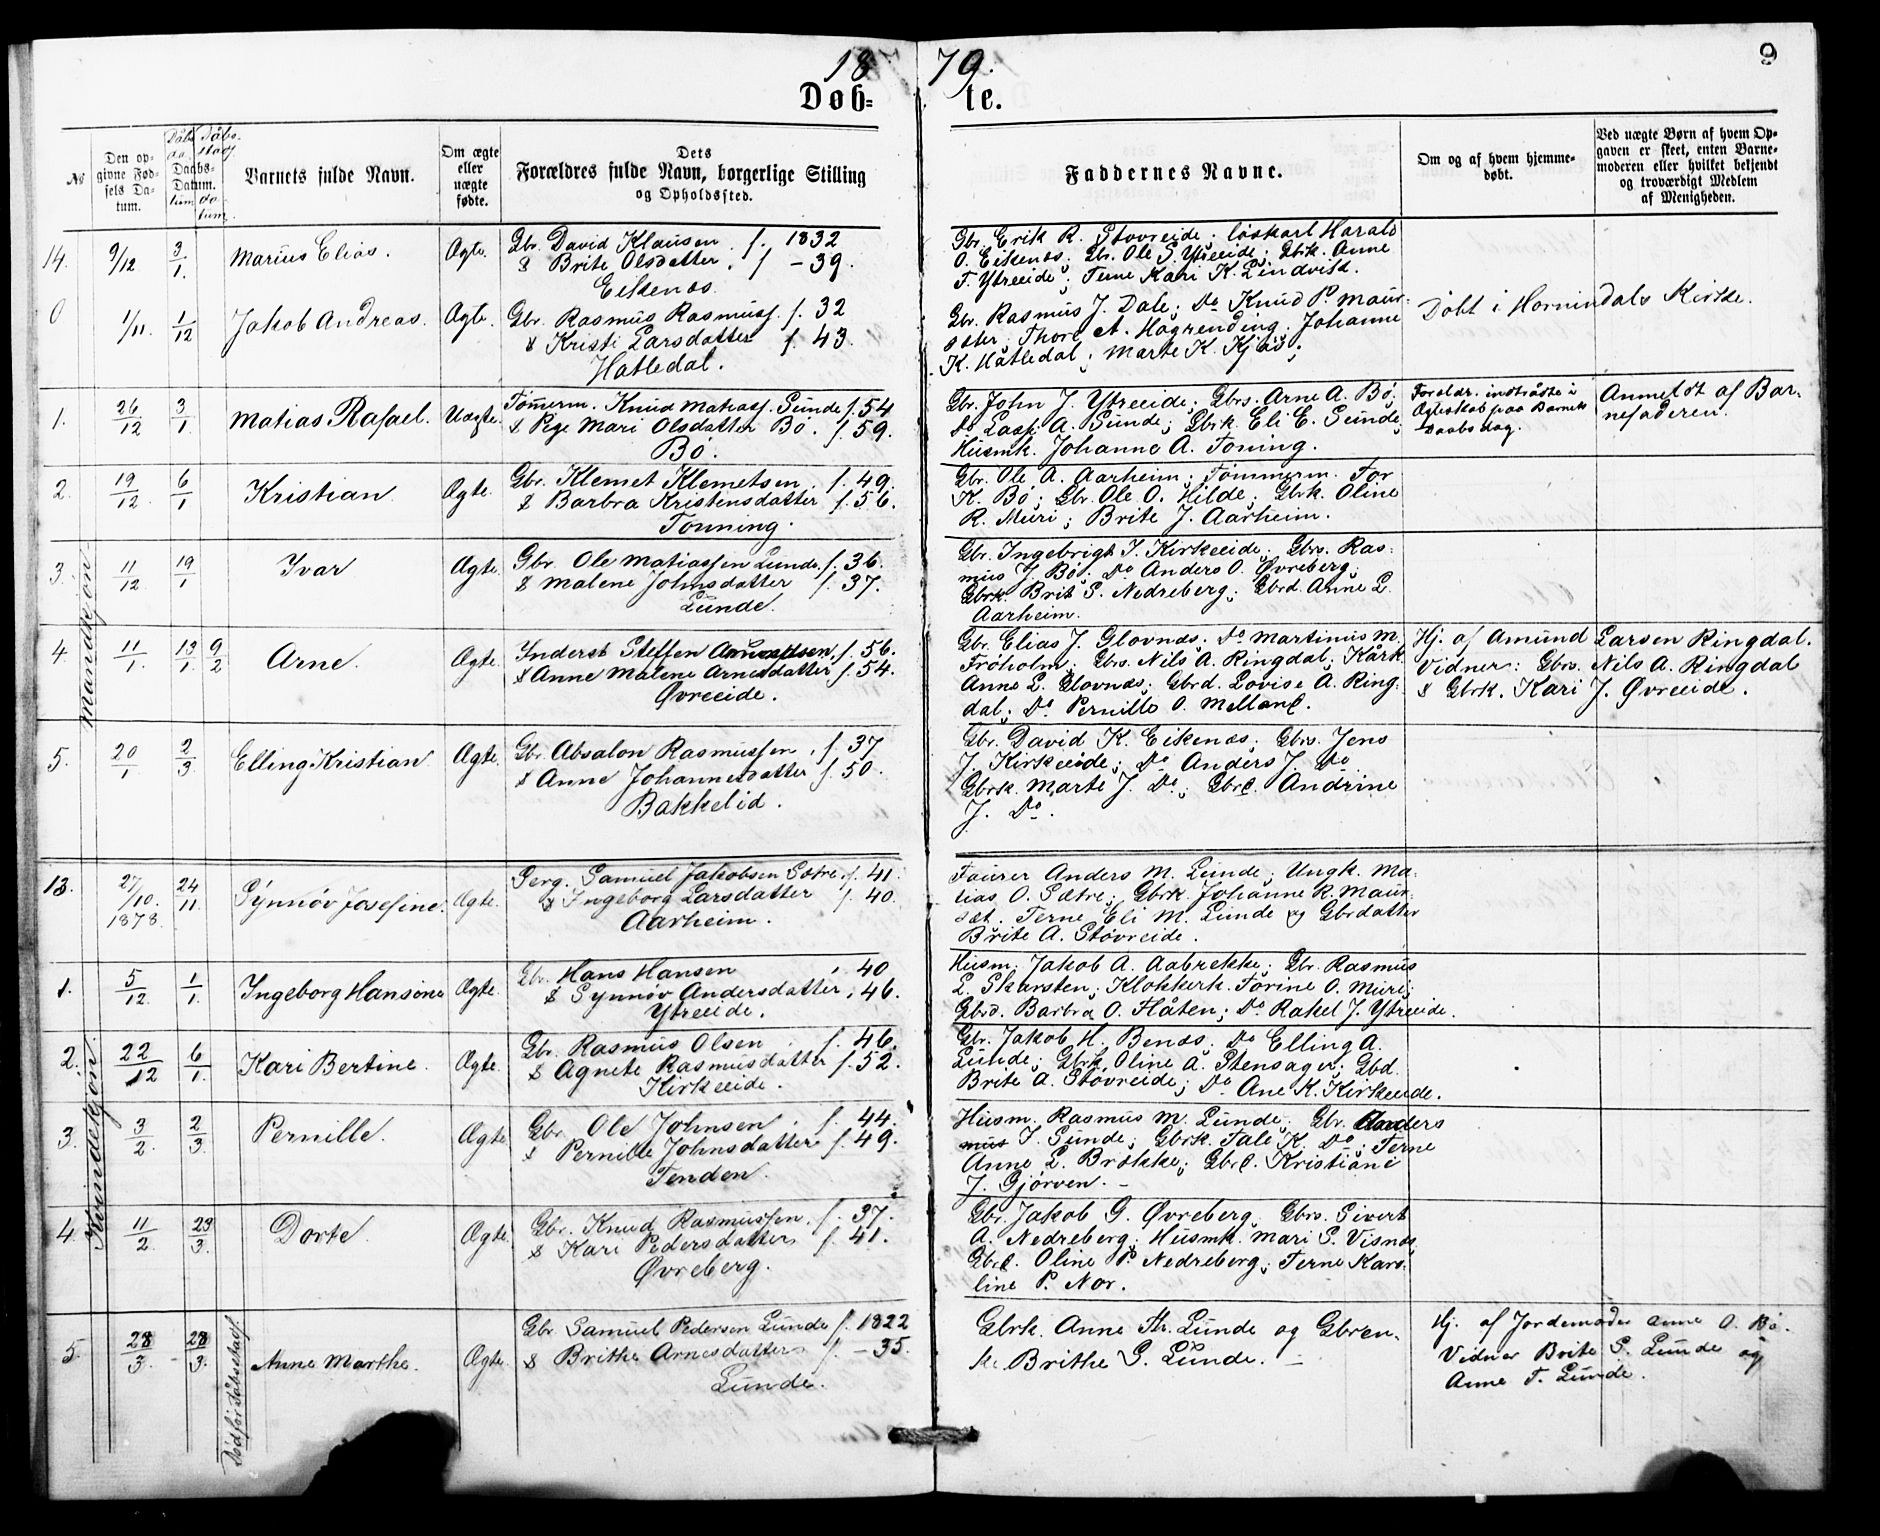 1879.
9
Døb-te.
№
Den op-
givne Fød-
sels Da-
tum.
Daabs-
Datum.
Dåbs
stadf
da-
tum
Barnets fulde Navn.
Om ægte
eller
uægte
fødte.
Dets
Forældres fulde Navn, borgerlige Stilling
og Opholdssted.
Faddernes Navne.
Om og af hvem hjemme-
døbt.
Ved uægte Børn af hvem Op-
gaven er skeet, enten Barne-
moderen eller hvilket bekjendt
og troværdigt Medlem
af Menigheden.
Mandkjøn
14. 9/12 3/1. Marius Elias. Ægte.
Gbr. David Klausen. f. 1832
& Brite Olsdatter. f. - 39.
Eikenæs.
Gbr. Erik R. Stovreide. løskarl Harald
O. Eikenæs; Gbr. Ole S. Ytreeide; Gbrk. Anne
T. Ytreeide; Terne Kari K. Lindvik.
0 1/11. 1/12 Jakob Andreas. Ægte.
Gbr. Rasmus Rasmuss. f. 32
& Kristi Larsdatter f. 43.
Hatledal.
Gbr. Rasmus J. Dale; Do Knud P. Maur-
sæter; Thore A. Hagrending. Johanne
K. Hatledal; Marte K. Kjøs;
Døbt i Hornindals Kirke.
1. 26/12 3/1. Matias Rafael. Uægte.
Tømerm. Knud Matiass. Sunde f. 54
& Pege Mari Olsdatter Bø. f. 59.
Bø.
Gbr. John J. Ytreeide; Gbrs. Arne A. Bø;
Do Lasse A. Sunde; Gbrk. Eli E. Sunde;
Husmk. Johanne A. Toning.
Foreldr. indtrådte i
Ægteskab paa Barnets
Daabsdag.
Anmeldt af Bar-
nefaderen.
2. 19/12. 6/1 Kristian. Ægte.
Gbr. Klemet Klemetsen. f. 49.
& Barbra Kristensdatter f. 56.
Tonning.
Gbr. Ole A. Aarheim; Tømmerm. Tor
K. Bø; Gbr. Ole O. Hilde; Gbrk. Oline
R. Muri; Brite J. Aarheim.
3. 11/12 19/1 Ivar Ægte.
Gbr. Ole Matiassen Lunde. f. 36.
& Malene Johnsdatter f. 37.
Lunde.
Gbr. Ingebrigt J. Kirkeeide; Gbrs. Ras-
mus J. Bø; Do Anders O. Øvreberg;
Gbrk. Brit S. Nedreberg; Gbrd. Anne L.
Aarheim.
4. 11/1. 13/1. 9/2 Arne. Ægte.
Inderst Steffen f. 56.
& Anne Malene Arnesdatter f. 54.
Øvreeide.
Gbr. Elias J. Glovnæs. Do Martinus M.
Frøholm; Gbrs. Nils A. Ringdal; Kårk
Anne L. Glovnæs; Gbrd. Lovise A. Ring-
dal; Do Pernille O. Melland.
Hj. af Amund Larsen Ringdal.
Vidner: Gbrs. Nils A. Ringdal
& Gbrk. Kari J. Øvreeide.
5. 20/1 2/3 Elling Kristian Ægte.
Gbr. Absalon Rasmussen. f. 37
& Anne Johannesdatter f. 50.
Bakkelid.
Gbr. David K. Eikenæs; Gbrs. Jens
J. Kirkeeide; Do Anders J. Do
Gbrk. Marte J. Do; Gbrd. Andrine
J. Do.
Kvindekjøn
13. 27/10. 1878. 24/11. Synnøv Josefine. Ægte.
Serg. Samuel Jakobsen Sætre. f. 41.
& Ingeborg Larsdatter f. 40.
Aarheim.
Anders M. Lunde; Ungk. Ma-
tias O. Sætre; Gbrk. Johanne R. Maur-
sæt. Terne Eli M. Lunde og Gbrdatter
Brite A. Støvreide.
1. 5/12. 1/1. Ingeborg Hansine Ægte.
Gbr. Hans Hansen. 40
& Synnøv Andersdatter. 46.
Ytreeide.
Husm. Jakob A. Aabrekke; Gbr. Rasmus
L. Skarsten; Klokkerk. Torine O. Muri;
Gbrd. Barbra O. Flåten; Do Rakel J. Ytreeide.
2. 22/12 6/1. Kari Bertine. Ægte.
Gbr. Rasmus Olsen f. 46.
& Agnete Rasmusdatter f. 52.
Kirkeeide.
Gbr. Jakob H. Benæs. Do Elling A.
Lunde; Gbrk. Oline A. Stensager; Gbd.
Brite A. Støvreide; Do Ane K. Kirkeeide.
3. 3/2. 2/3. Pernille. Ægte.
Gbr. Ole Johnsen. f. 44.
& Pernille Johnsdatter f. 49.
Tenden.
Husm. Rasmus M. Lunde; Gbr. Anders
mus J. Sunde; Gbrk. Tale K. Do; Terne
Anne L. Brække; Gbrd. Kristiane
J. Gjørven. -
4. 11/2. 23/3. Dorte. Ægte.
Gbr. Knud Rasmussen. f. 37.
& Kari Pedersdatter f. 41.
Øvreberg.
Gbr. Jakob G. Øvreberg. Gbrs. Sivert
A. Nedreberg; Husmk. Mari S. Visnæs;
Gbrd. Oline P. Nedreberg; Terne Karo-
line P. Nor.
5. 28/3. - 28/3. Død før Dåbsstadf. Anne Marthe. Ægte.
Gbr. Samuel Pedersen Lunde f. 1822
& Brithe Arnesdatter f. - 35.
Lunde.
Gbrk. Anne Th. Lunde og Gbren-
ke Brithe G. Lunde. -
Hj. af Jordemoder Anne O. Bø.
Vidner Brite S. Lunde og
Anne T. Lunde.